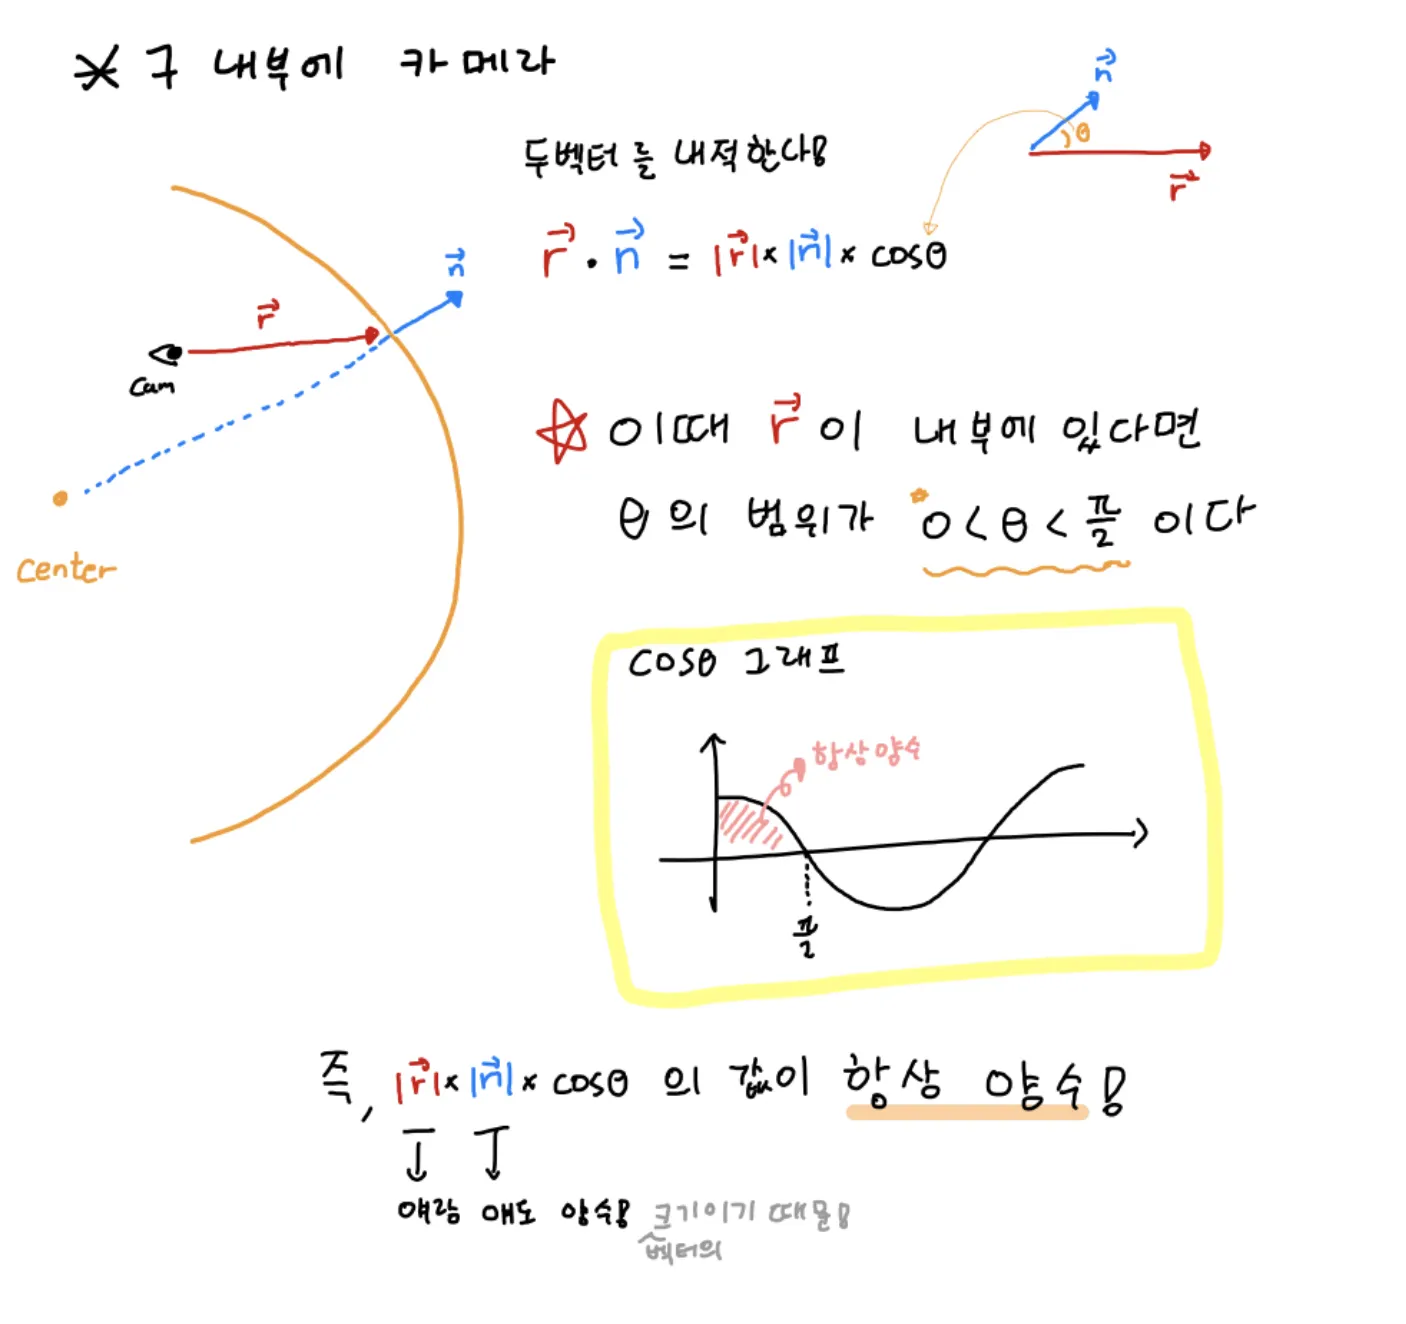 ※ 구 내부에 카메라
n
θ
r
두벡터를 내적한다!
r · n = |r| × |n| × cosθ
n
r
cam
center
☆ 이때 r 이 내부에 있다면
θ의 범위가 *0 < θ < π/2 이다
cosθ 그래프
항상 양수
π/2
즉, |r| × |n| × cosθ 의 값이 항상 양수!
얘랑 얘도 양수! 크기이기 때문!
벡터의